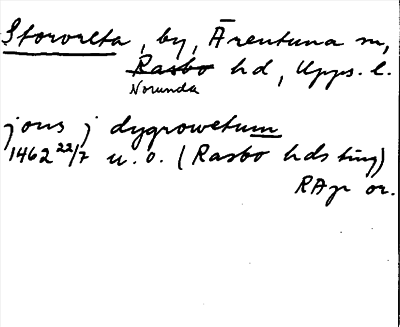 Storvreta, by, Ärentuna sn,
Rasbo hd, Upps. l.
Norunda
jous j dygrowetum
1462 22/7 u. o. (Rasbo hds ting)
RAp or.